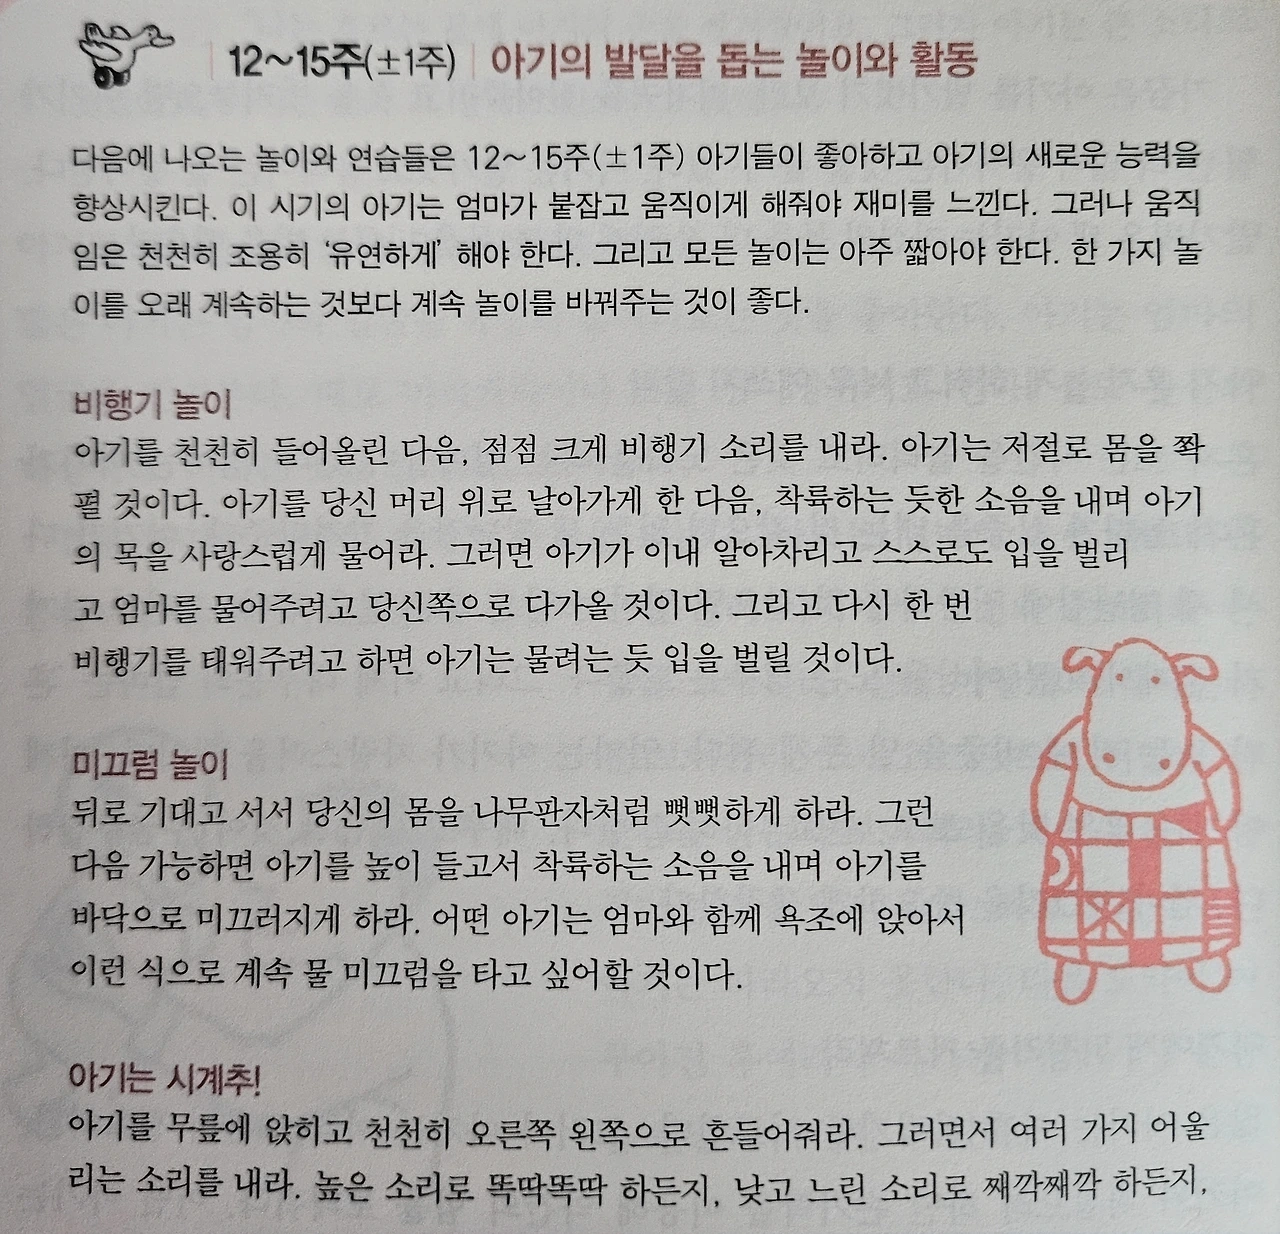 12~15주(±1주) 아기의 발달을 돕는 놀이와 활동
다음에 나오는 놀이와 연습들은 12~15주(±1주) 아기들이 좋아하고 아기의 새로운 능력을
향상시킨다. 이 시기의 아기는 엄마가 붙잡고 움직이게 해줘야 재미를 느낀다. 그러나 움직
임은 천천히 조용히 ‘유연하게’ 해야 한다. 그리고 모든 놀이는 아주 짧아야 한다. 한 가지 놀
이를 오래 계속하는 것보다 계속 놀이를 바꿔주는 것이 좋다.
비행기 놀이
아기를 천천히 들어올린 다음, 점점 크게 비행기 소리를 내라. 아기는 저절로 몸을 쫙
펼 것이다. 아기를 당신 머리 위로 날아가게 한 다음, 착륙하는 듯한 소음을 내며 아기
의 목을 사랑스럽게 물어라. 그러면 아기가 이내 알아차리고 스스로도 입을 벌리
고 엄마를 물어주려고 당신쪽으로 다가올 것이다. 그리고 다시 한 번
비행기를 태워주려고 하면 아기는 물려는 듯 입을 벌릴 것이다.
미끄럼 놀이
뒤로 기대고 서서 당신의 몸을 나무판자처럼 뻣뻣하게 하라. 그런
다음 가능하면 아기를 높이 들고서 착륙하는 소음을 내며 아기를
바닥으로 미끄러지게 하라. 어떤 아기는 엄마와 함께 욕조에 앉아서
이런 식으로 계속 물 미끄럼을 타고 싶어할 것이다.
아기는 시계추!
아기를 무릎에 앉히고 천천히 오른쪽 왼쪽으로 흔들어줘라. 그러면서 여러 가지 어울
리는 소리를 내라. 높은 소리로 똑딱똑딱 하든지, 낮고 느린 소리로 째깍째깍 하든지,